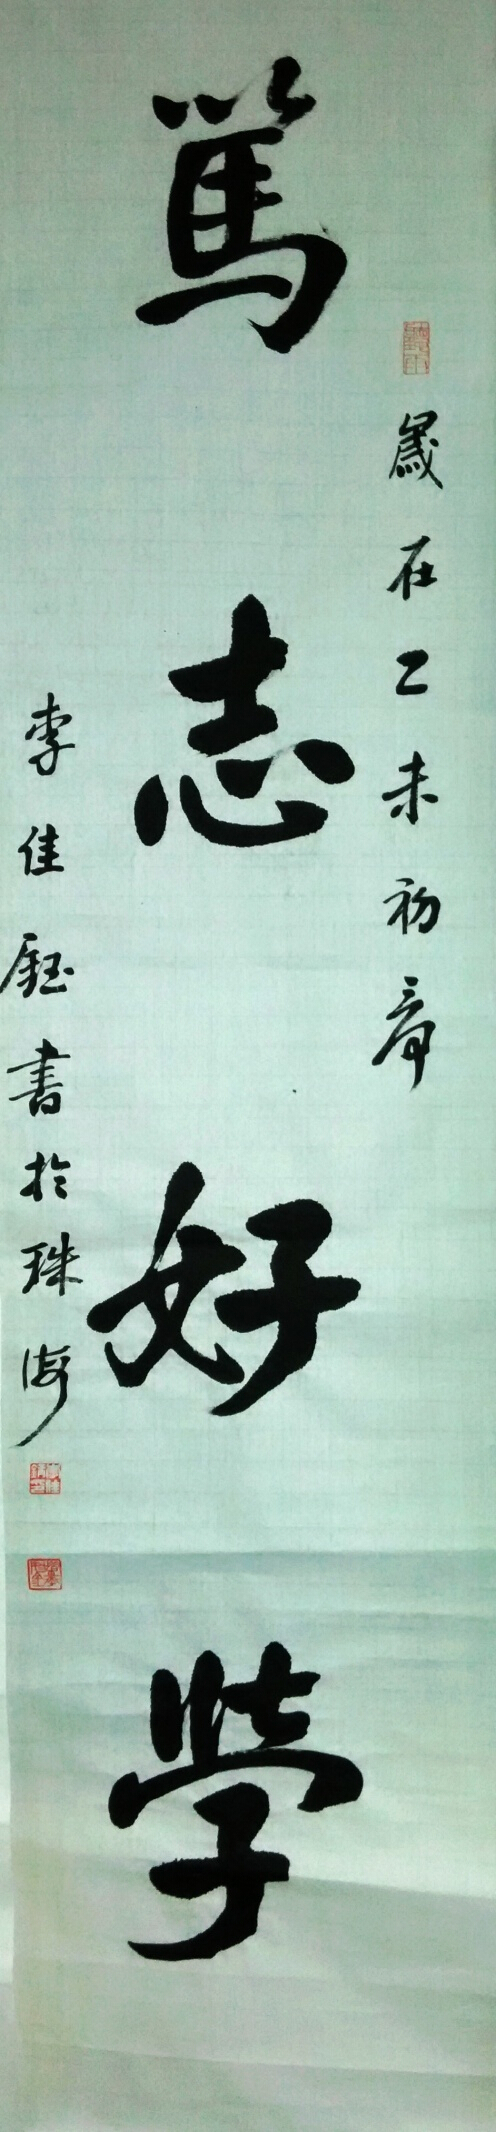 歲在乙未初春
篤志好學
李佳鈺書於珠海